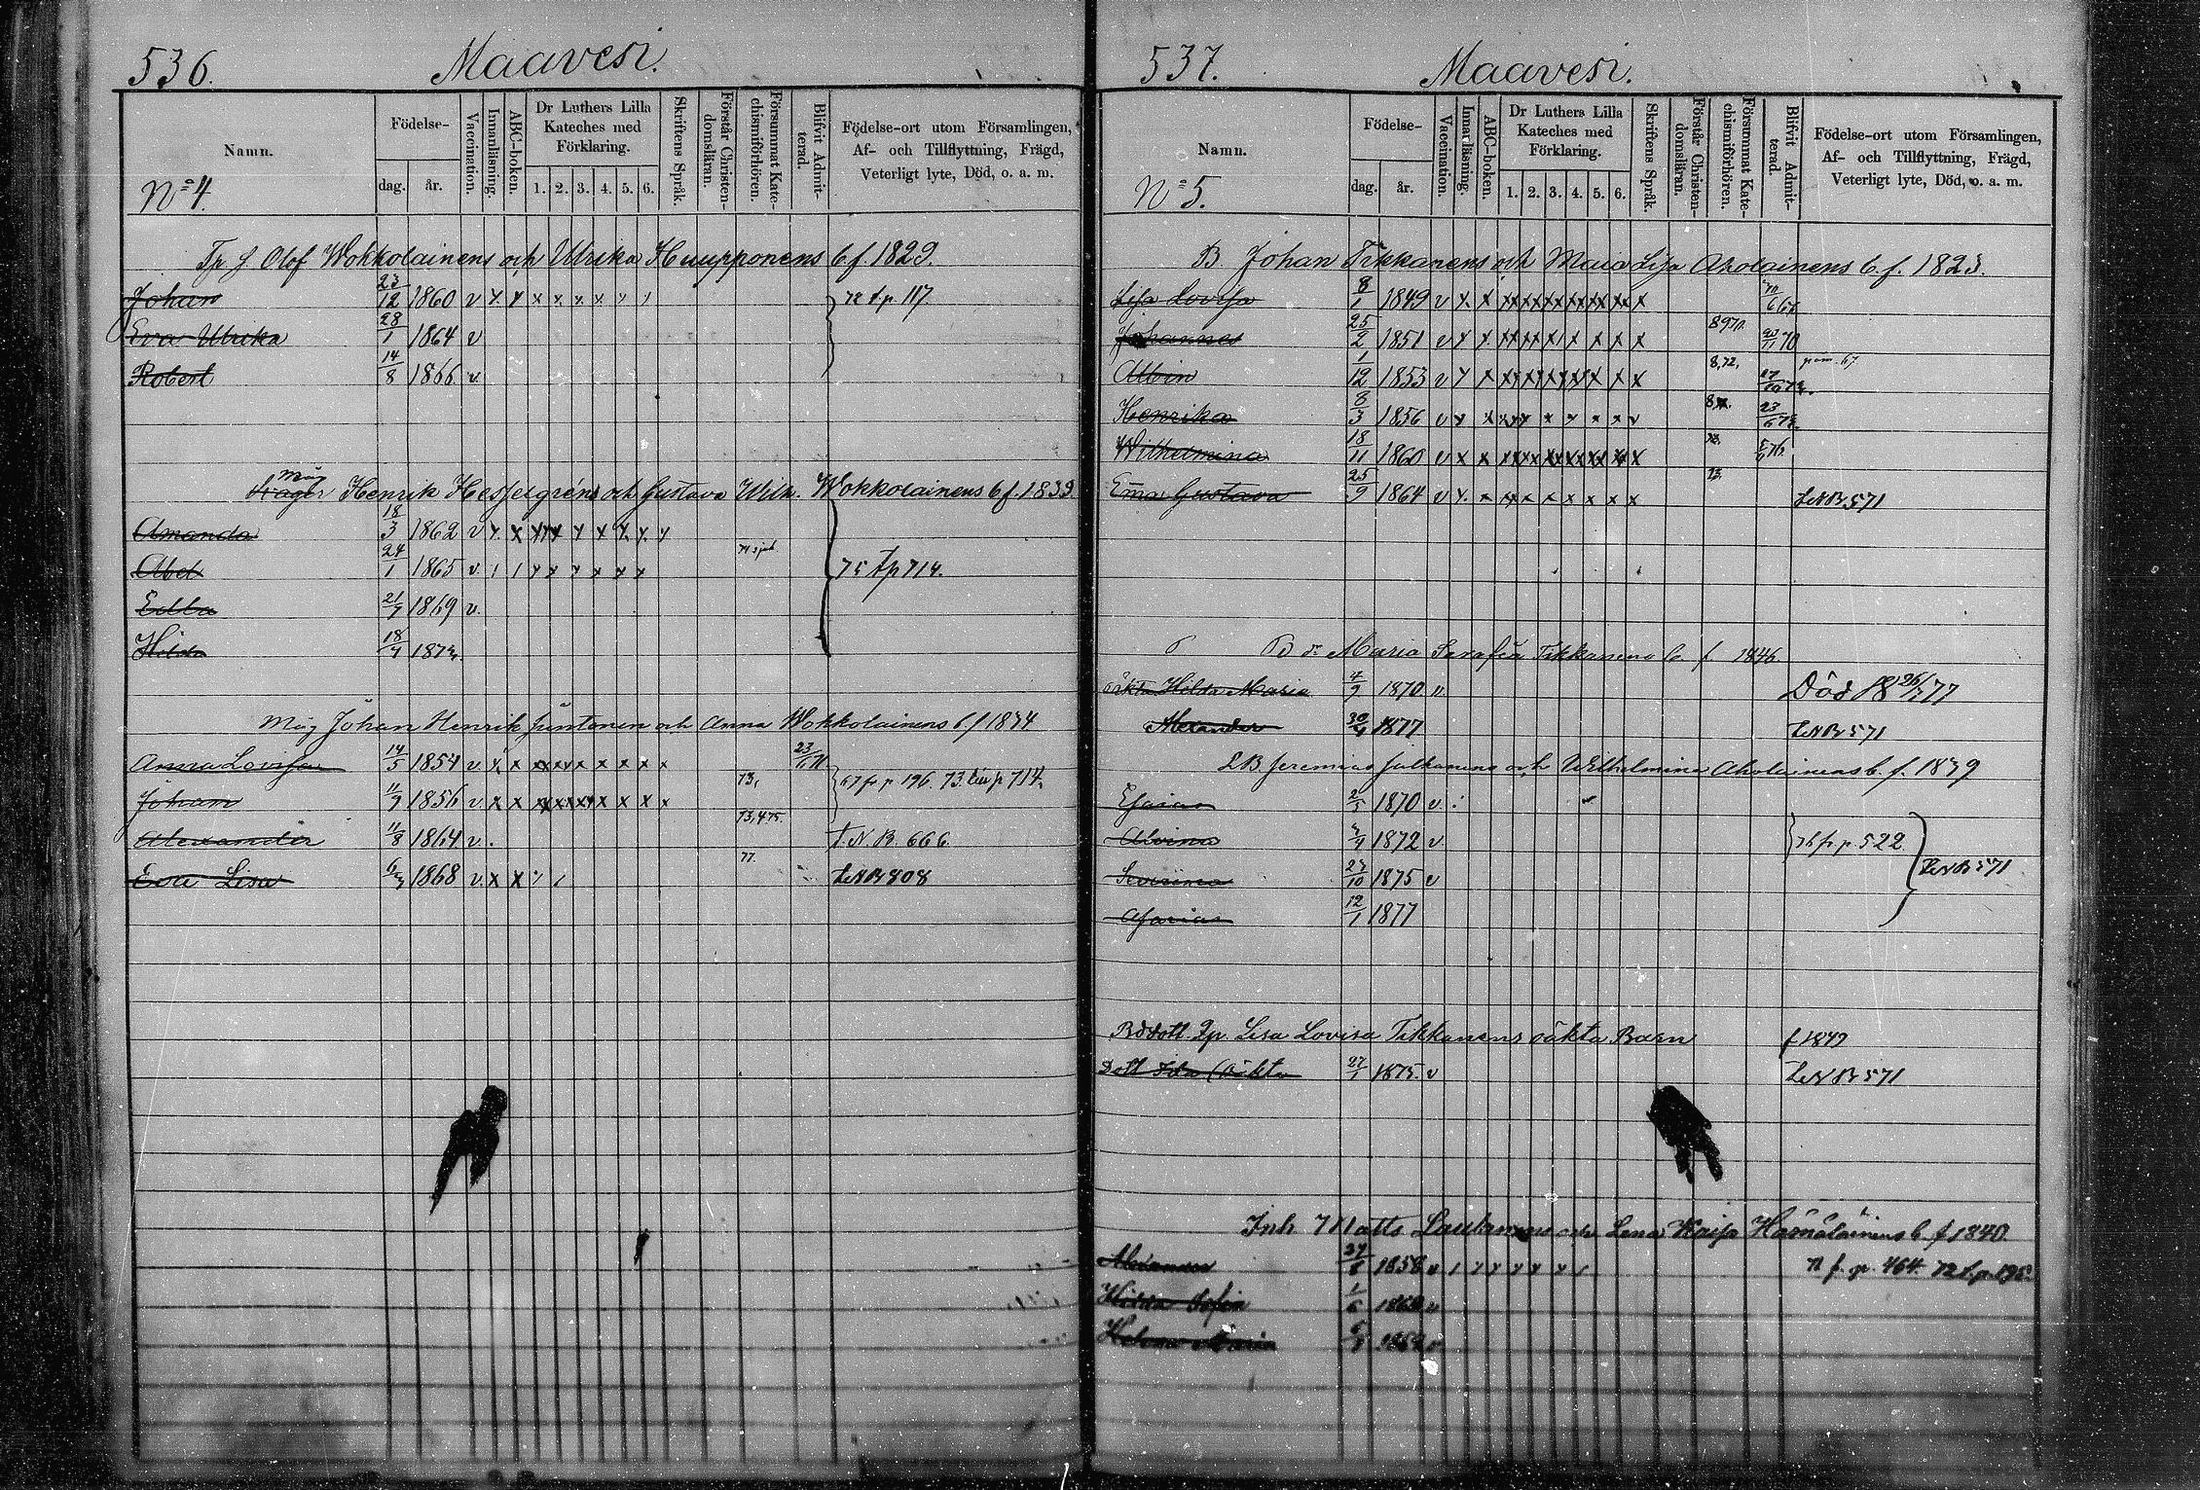 536. Maavesi.
Namn. Födelse- dag. år. Vaccination. Innanläsning. ABC-boken. Dr Luthers Lilla Kateches med Förklaring. 1. 2. 3. 4. 5. 6. Skriftens Språk. Förstår Christen-domsläran. Försummat Kate-chismiförhören. Blifvit Admit-terad. Födelse-ort utom Församlingen, Af- och Tillflyttning, Frägd, Veterligt lyte, Död, o. a. m.
No 4.
Olof Wokkolainens och Ulrika Huupponens b f 1829.
Johan 23/12 1860 v x x x x x x 72 t p 117.
Eva Ulrika 28/1 1864 v
Robert 14/8 1866 v
Måg Henrik Hesselgréns och Gustava Wilh. Wokkolainens b f. 1839
Amanda 18/3 1862 v x x x x x x x x x
Abel 24/1 1865 v 75 t p 714.
Edla 21/7 1869 v.
Hilda 18/4
Måg Johan Henrik och Anna Wokkolainens b f 1834
Anna Lovisa 14/5 1854 v x x x x x x x x x x 23/6 71
Johan 11/9 1856 v x x x x x x x x x x 73, 67 f p 196. 73. p 714.
Alexander 11/8 1864 v. 73, 475. T. N. B. 666
Eva Lisa 1868 v x x 77. LNB 808
537. Maavesi.
Namn. Födelse- dag. år. Vaccination. Innanläsning. ABC-boken. Dr Luthers Lilla Kateches med Förklaring. 1. 2. 3. 4. 5. 6. Skriftens Språk. Förstår Christen-domsläran. Försummat Kate-chismiförhören. Blifvit Admit-terad. Födelse-ort utom Församlingen, Af- och Tillflyttning, Frägd, Veterligt lyte, Död, o. a. m.
No 5.
B. Johan Tikkanens och Maia Lisa Aholainens b. f. 1823.
Lisa Lovisa 8/1 1849 v x x x x x x x x x
Johannes 25/2 1851 v x x x x x x x x x 70
Albin 1/12 1853 v x x x x x x x x x 8,72,
Henrika 8/3 1856 v x x x x x x x x x 23/6
Wilhelmina 18/11 1860 v x x x x x x x x x
Emma Gustava 25/9 1864 v x x x x x x x x x 73. LNB 571
B d:r Maria Serafia Tikkanens b. f 1846
oäkta Hilda Maria 4/9 1870 v Död 77
Alexander 30/4 1877 LNB 571
Jeremias Julkunens och Wilhelmina Aholainens b. f. 1839
Esaias 1870 v
Alvina 1872 v 76 f. p 522
Severina 27/10 1875 v LNB 571
Asarias 12/1 1877
Lisa Lovisa Tikkanens oäkta Barn f 1849
Dott Ida (oäkta 27/1 1875. v LNB 571
Inh Matts Lautanens och Lena Kaisa Hämäläinens b f 1840
Alexander 27/8 1858 v 71 f. p. 464. 72 t. p. 195.
Hilda Sofia 1/6 v
Helena Maria v